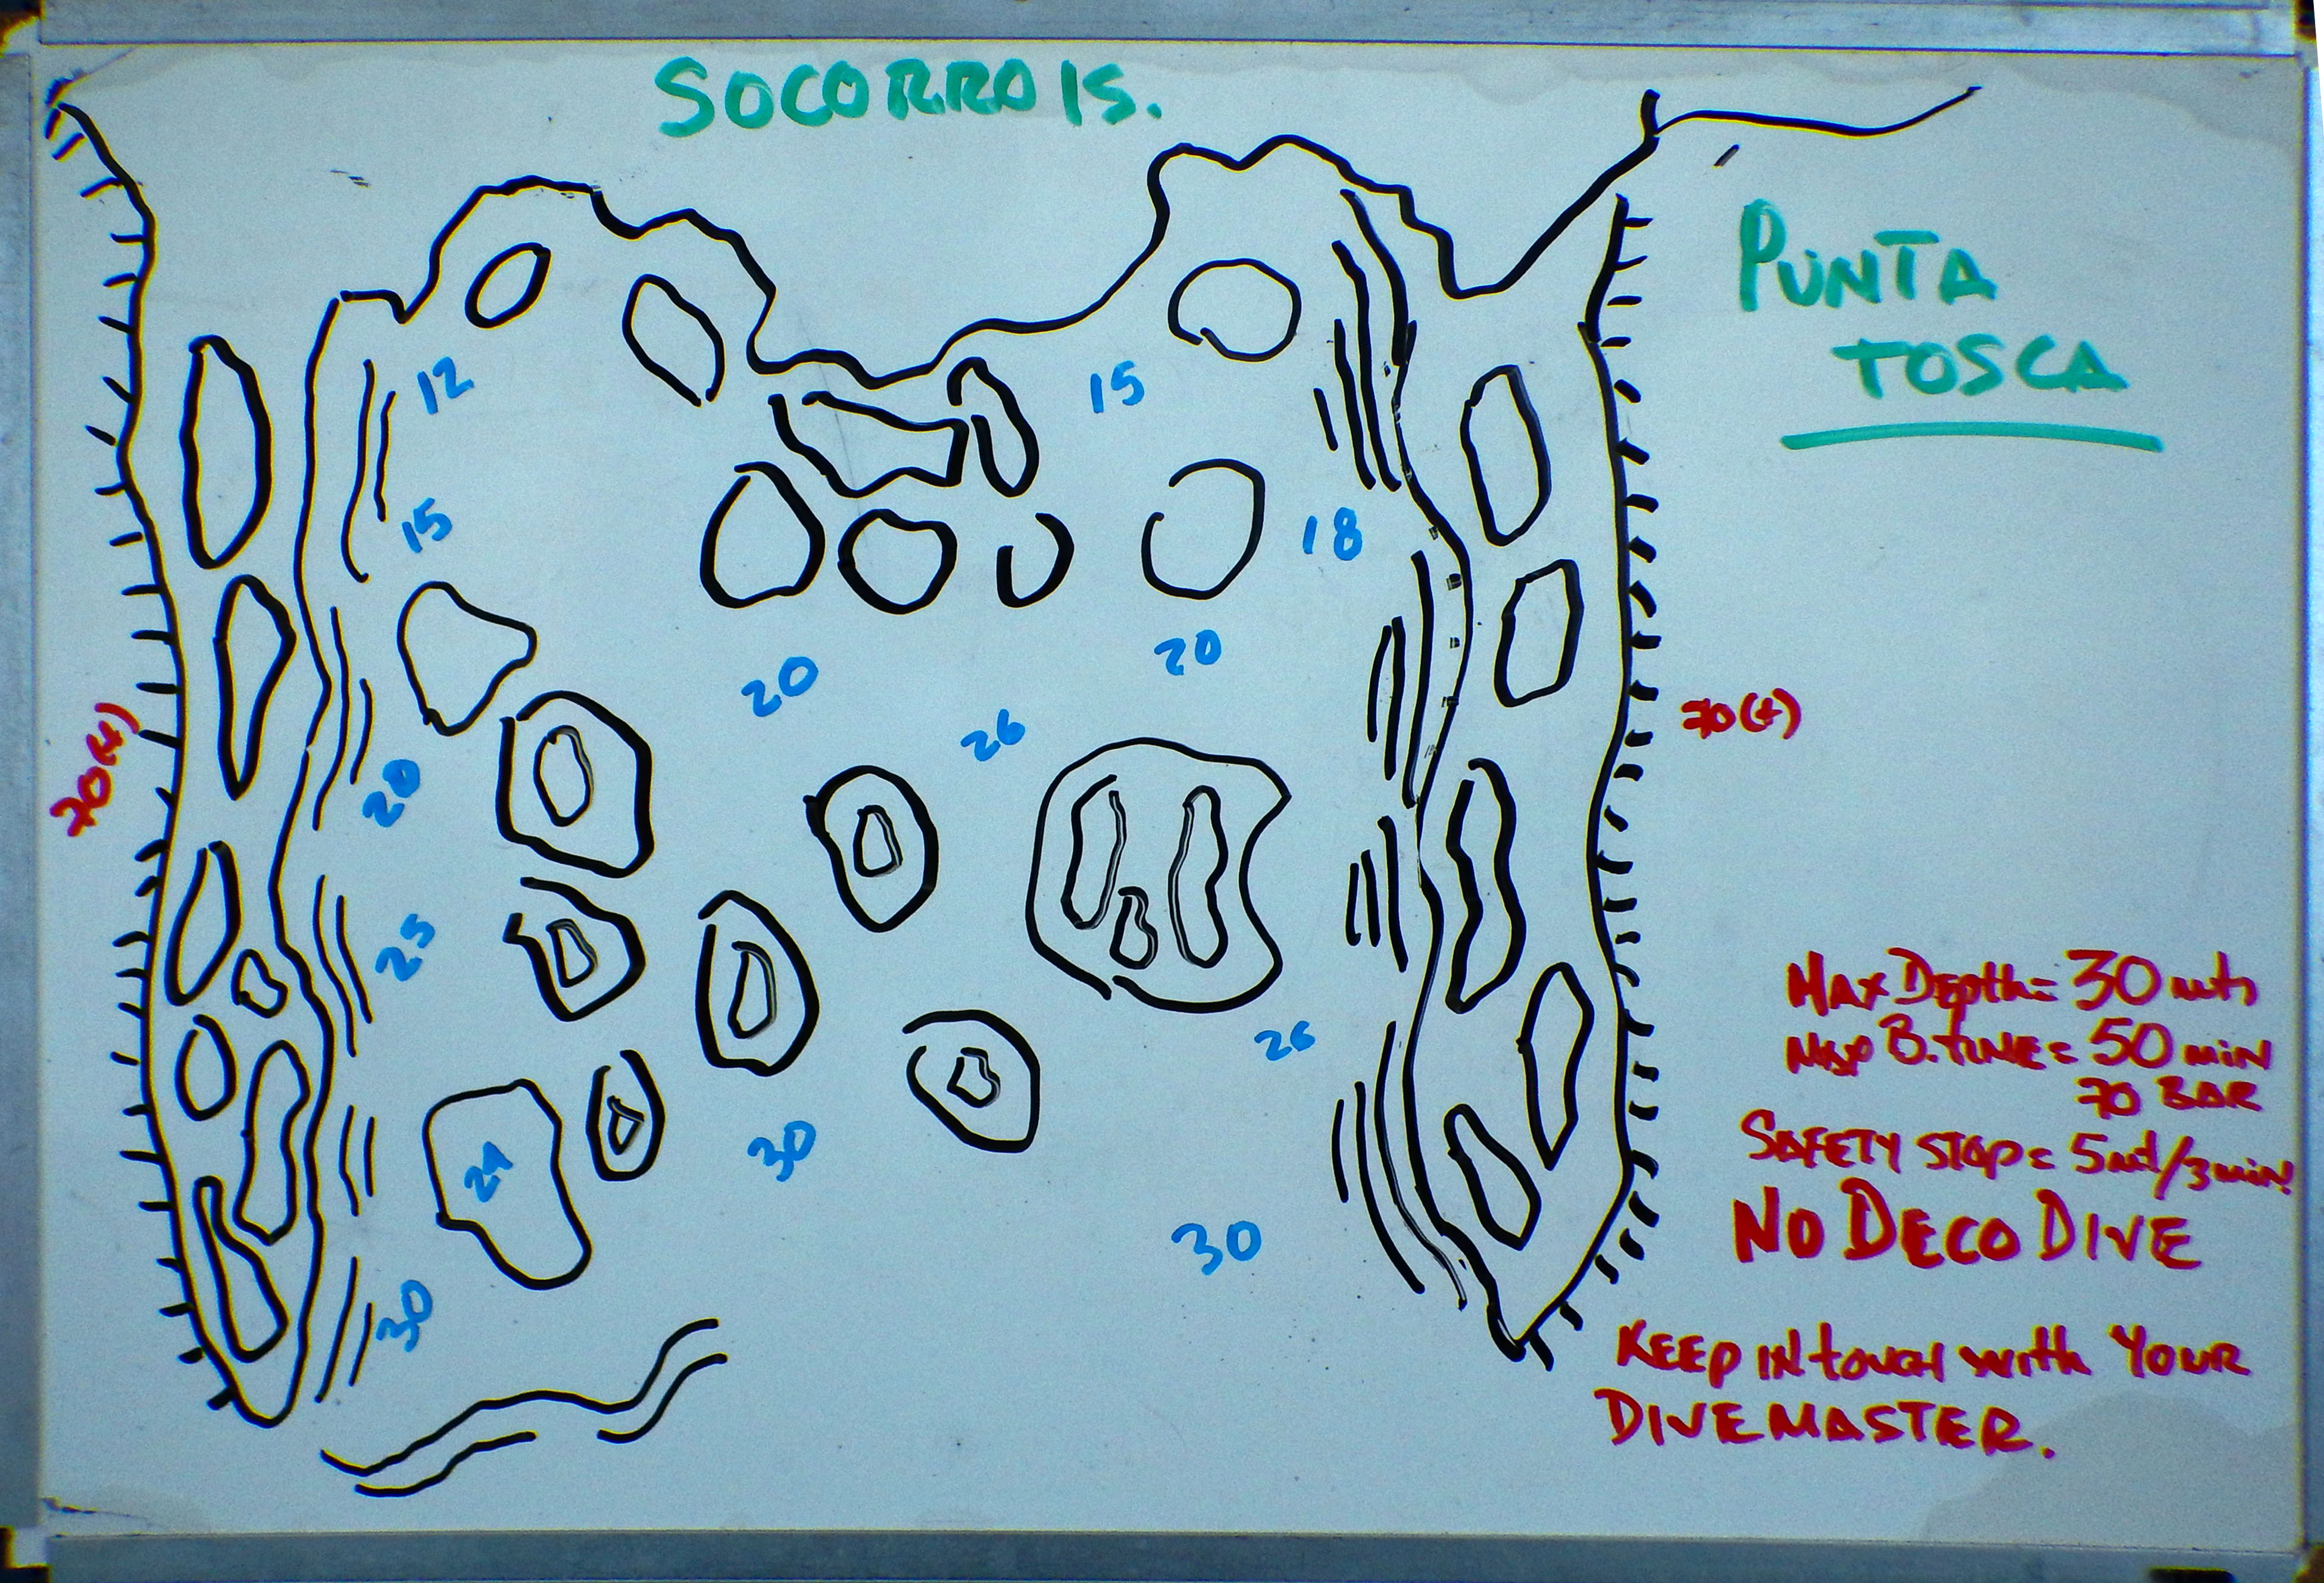 SOCORRO IS.
PUNTA
TOSCA
12
15
15
18
20
20
26
20
70(+)
70(+)
25
26
30
30
30
MAX DEPTH = 30 mts
MAX B. TIME = 50 MIN
70 BAR
SAFETY STOP = 5mt/3min!
NO DECO DIVE
KEEP IN TOUCH WITH YOUR
DIVEMASTER.